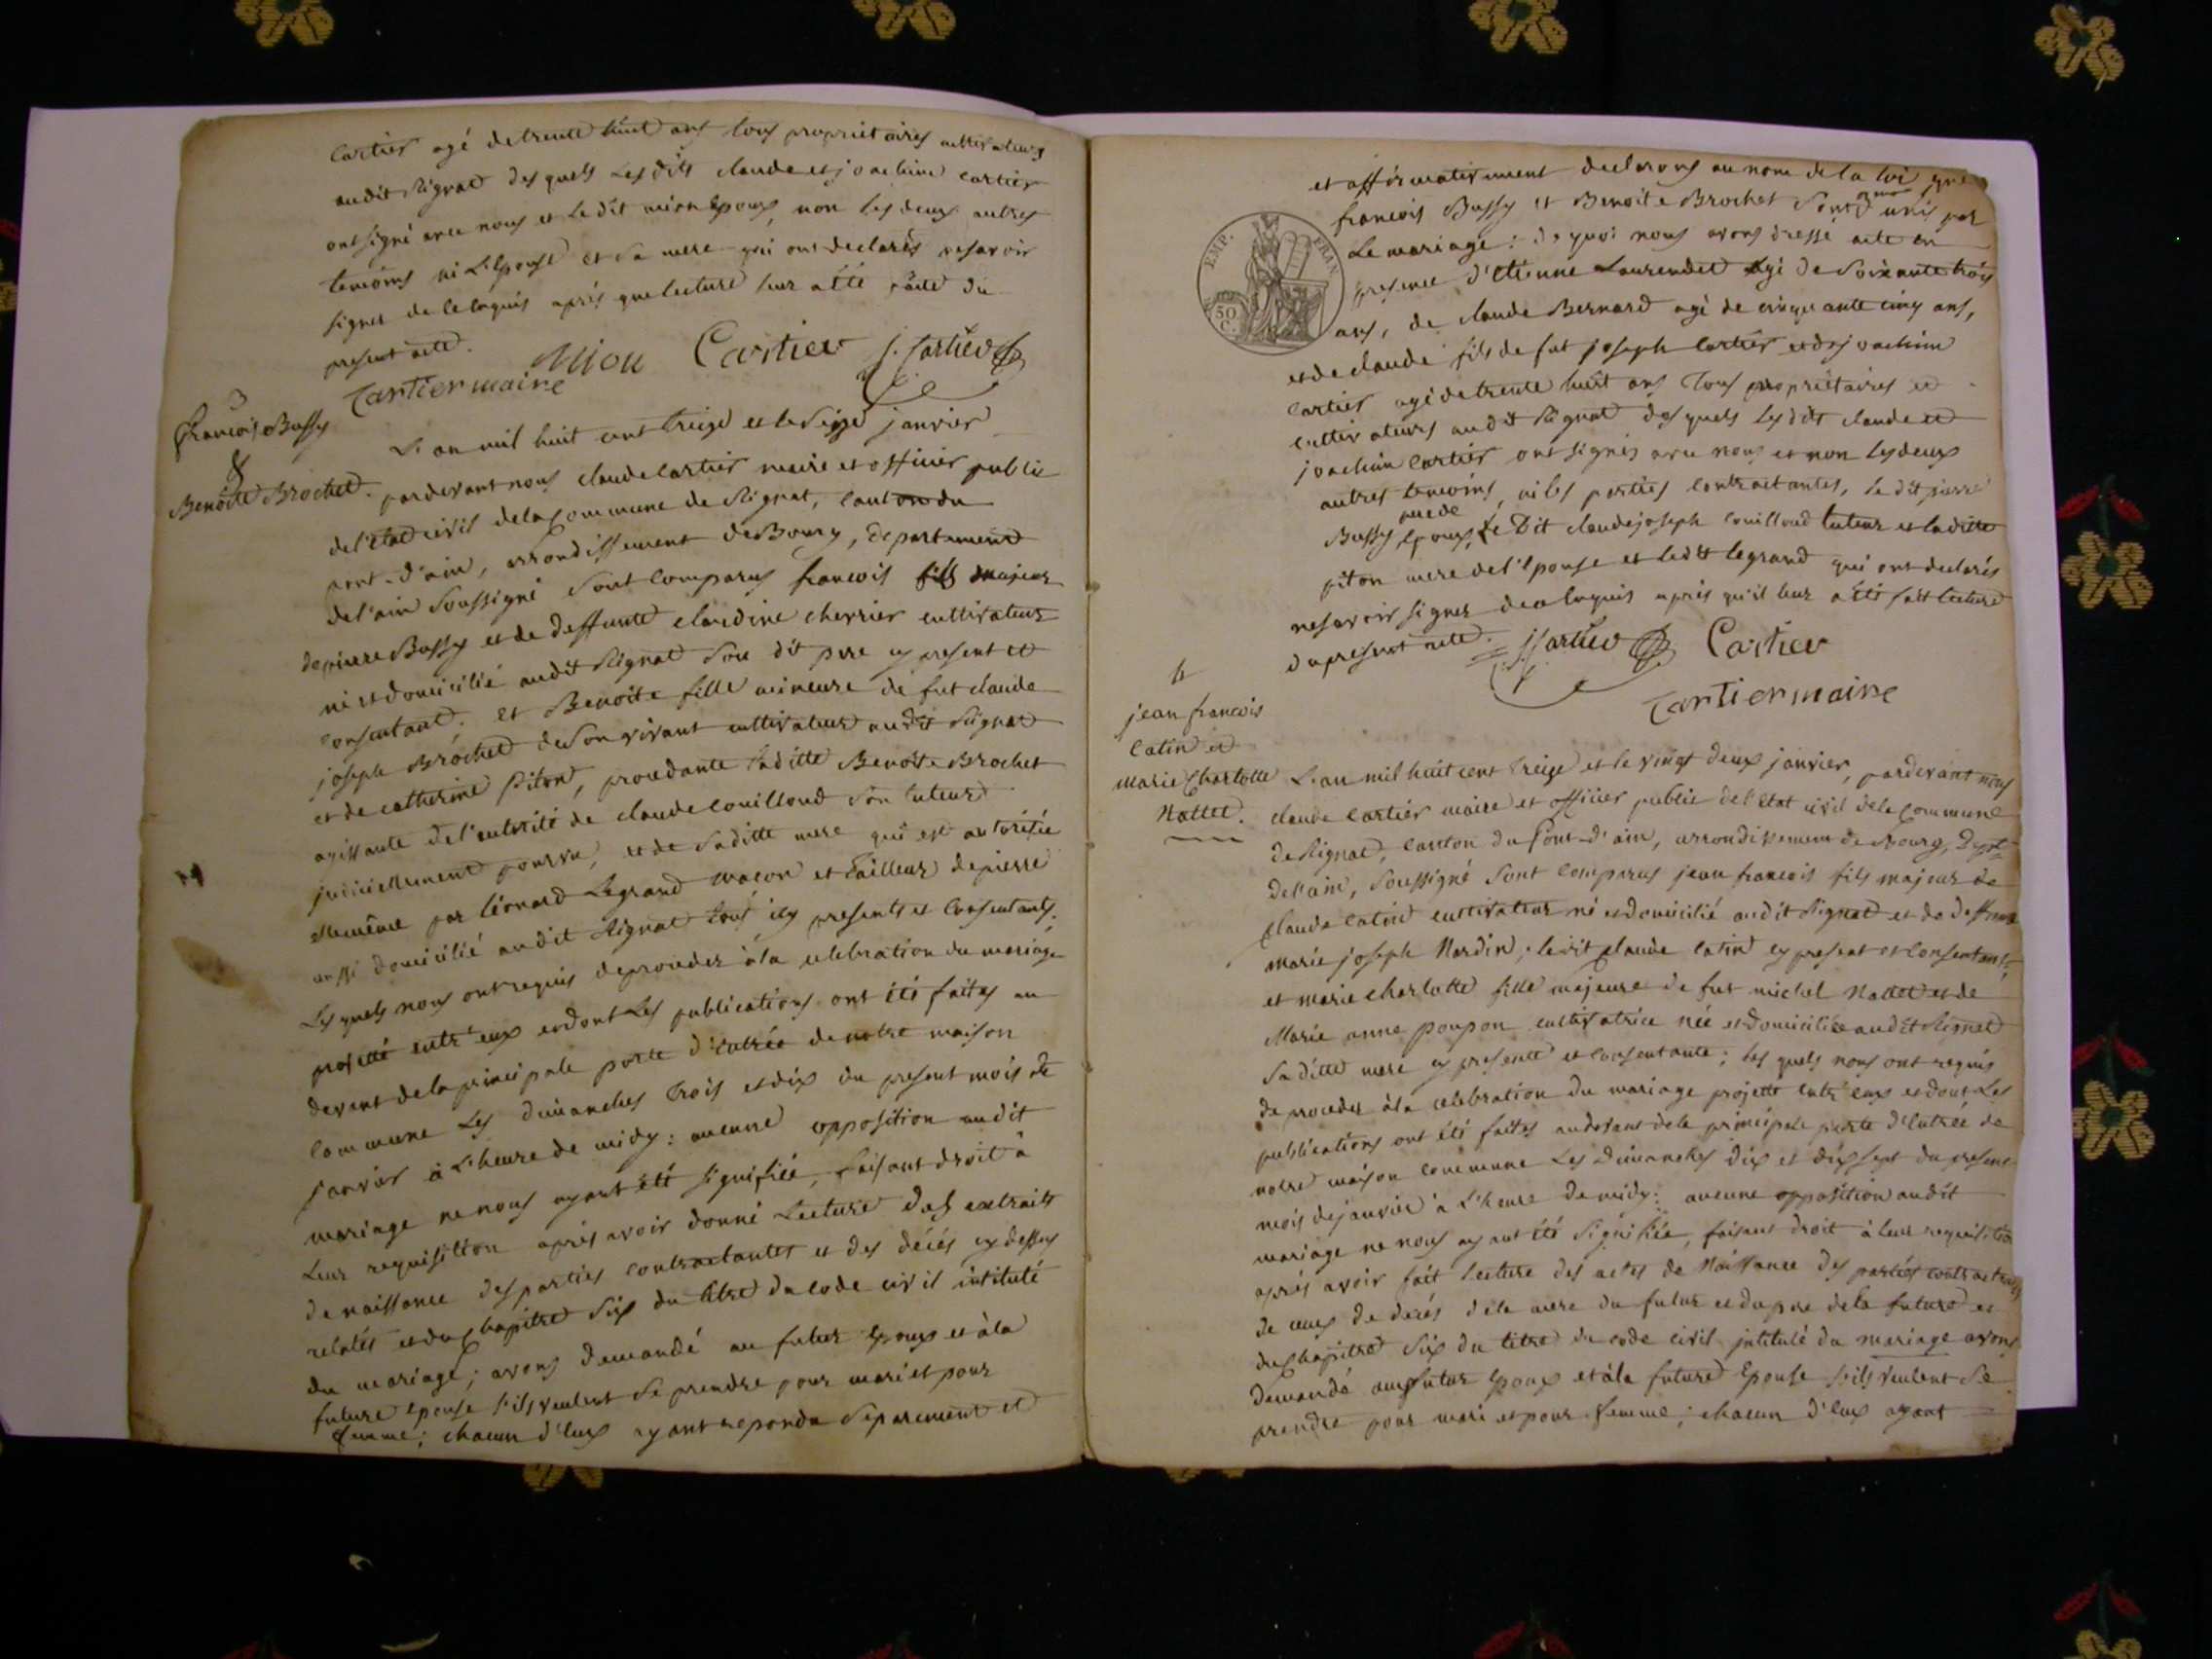 cartier agé de trente huit ans tous propriétaires cultivateurs
audit Rignat des quels Les dits claude et joachim cartier
ont signé avec nous et Le dit mion Epoux, non les deux autres
temoins ni L'Epouse et sa mere qui ont declarés ne savoir
signer de ce enquis aprés que lecture leur a été faite du
present acte.
Mion Cartier J. Cartier
Cartier maire
3
francois Bussy
&
Benoite Brochet.
L'an mil huit cent treize et le seize janvier
pardevant nous claude cartier maire et officier public
de l'état civil de la Commune de Rignat, canton du
pont-d'ain, arrondissement de Bourg, departement
de l'ain soussigné sont comparus francois fils majeur
de pierre Bussy et de deffunte claudine cherrier cultivateur
né et domicilié audit Rignat son dit pere cy present et
consentant. et Benoite fille mineure de fut claude
joseph Brochet de son vivant cultivateur audit Rignat
et de catherine Piton, procedante laditte Benoite Brochet
agissante de l'autorité de claude couilloud son tuteur
judiciellement pourvu, et de saditte mere qui est autorisée
ellemême par léonard Legrand macon et tailleur de pierre
aussi domicilié audit Rignat tous icy presents et consentants.
Les quels nous ont requis de proceder à la celebration du mariage
projetté entr'eux et dont Les publications ont été faites au
devant de la principale porte d'entrée de notre maison
commune Les dimanches trois et dix du present mois de
janvier à L'heure de midy: aucune opposition audit
mariage ne nous ayant été signifiée, faisant droit à
Leur requisition aprés avoir donné Lecture des extraits
de naissance des parties contractantes et des décés cy dessus
relatés et du chapitre six du titre du code civil intitulé
du mariage; avons demandé au futur Epoux et à la
future epouse s'ils veulent se prendre pour mari et pour
femme; chacun d'eux ayant repondu separement et
et affirmativement declarons au nom de la loi que
francois Bussy et Benoite Brochet sont unis par
Le mariage: de quoi nous avons dressé acte en
presence d'Etienne Laurendet agé de soixante trois
EMP. FRAN
50
C.
ans, de claude Bernard agé de cinquante cinq ans,
et de claude fils de fut joseph cartier et de joachim
cartier agé de trente huit ans tous propriétaires et
cultivateurs audit Rignat des quels les dits claude et
joachim cartier ont signés avec nous et non les deux
autres temoins, ni les parties contractantes, le dit pierre
pere de
Bussy, epoux, Le Dit claude joseph couilloud tuteur et laditte
piton mere de l'Epouse et le dit legrand qui ont declarés
ne savoir signer de ce enquis aprés qu'il leur a été fait lecture
du present acte. J. Cartier Cartier
Cartier maire
4
jean francois
catin et
marie Charlotte
Nallet.
L'an mil huit cent treize et le vingt deux janvier, pardevant nous
claude cartier maire et officier public de l'état civil de la Commune
de Rignat, canton du Pont-d'ain, arrondissement de Bourg, Dept
de l'ain, soussigné sont comparus jean francois fils majeur de
claude catin cultivateur né et domicilié audit Rignat et de deffunte
marie joseph Nardin; ledit claude catin cy present et consentant;
et marie charlotte fille majeure de fut michel Nallet et de
Marie anne poupon cultivatrice née et domiciliée audit Rignat
saditte mere cy presente et consentante; les quels nous ont requis
de proceder à la celebration du mariage projetté entr'eux et dont Les
publications ont été faites au devant de la principale porte d'entrée de
notre maison commune Les dimanches dix et dix sept du present
mois de janvier à L'heure de midy: aucune opposition audit
mariage ne nous ayant été signifiée, faisant droit à leur requisition
aprés avoir fait lecture des actes de Naissance des parties contractantes
de ceux de decés de la mere du futur et du pere de la future et
du chapitre six du titre du code civil intitulé du mariage avons
demandé au futur Epoux et à la future Epouse s'ils veulent se
prendre pour mari et pour femme; chacun d'eux ayant